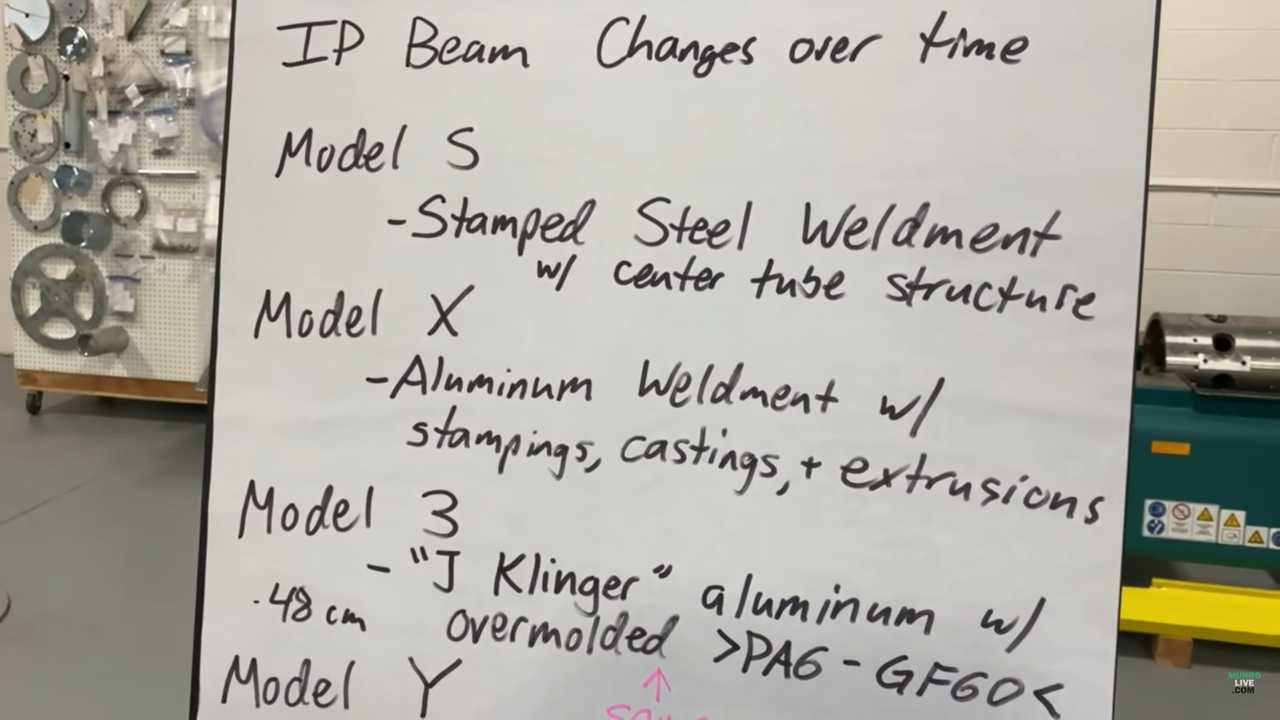 IP Beam Changes over time
Model S
-Stamped Steel Weldment
w/ center tube structure
Model X
-Aluminum Weldment w/
stampings, castings, + extrusions
Model 3
- "J Klinger" aluminum w/
.48 cm overmolded >PA6-GF60<
Model Y
MUNRO
LIVE
.COM